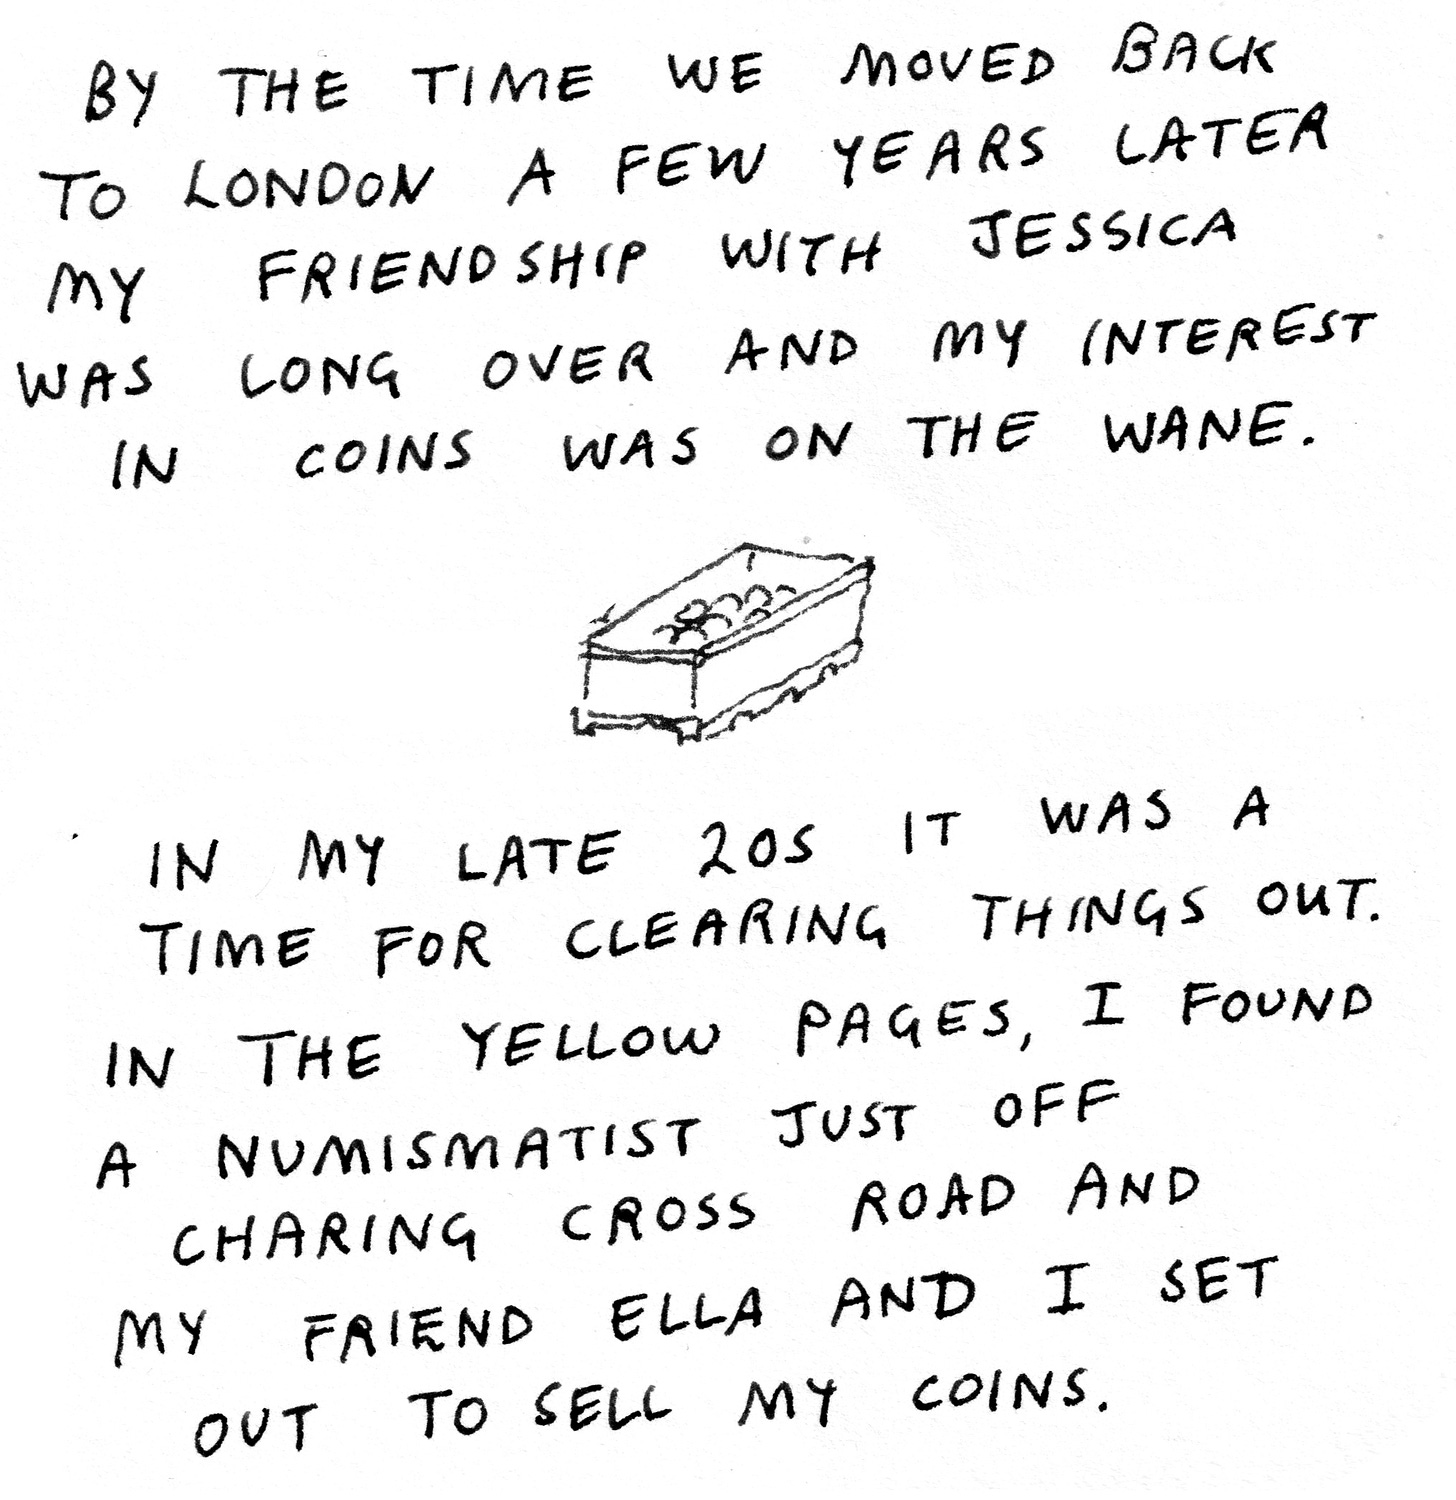 BY THE TIME WE MOVED BACK
TO LONDON A FEW YEARS LATER
MY FRIENDSHIP WITH JESSICA
WAS LONG OVER AND MY INTEREST
IN COINS WAS ON THE WANE.
IN MY LATE 20S IT WAS A
TIME FOR CLEARING THINGS OUT.
IN THE YELLOW PAGES, I FOUND
A NUMISMATIST JUST OFF
CHARING CROSS ROAD AND
MY FRIEND ELLA AND I SET
OUT TO SELL MY COINS.